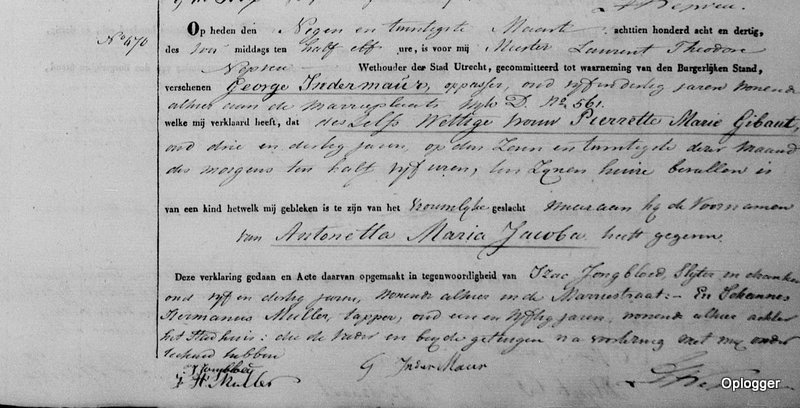 No 476
Op heden den Negen en twintigste Maart achttien honderd acht en dertig,
des voor middags ten half elf ure, is voor mij Meester Laurent Theodore
Nepveu Wethouder der Stad Utrecht, gecommitteerd tot waarneming van den Burgerlijken Stand,
verschenen George Indermaur, oppasser, oud vijf en dertig jaren wonende
alhier aan de Mariaplaats wijk D. No 561.
welke mij verklaard heeft, dat deszelfs Wettige vrouw Pierrette Marie Gibaut,
oud drie en dertig jaren, op den Zeven en twintigste dezer maand
des morgens ten half vijf uren, ten Zynen huize bevallen is
van een kind hetwelk mij gebleken is te zijn van het Vrouwelyke geslacht waaraan hy de Voornamen
van Antonetta Maria Jacoba heeft gegeven.
Deze verklaring gedaan en Acte daarvan opgemaakt in tegenwoordigheid van Izac Jongbloed, Slyter in dranken
oud vyf en dertig jaren, wonende alhier in de Mariestraat:– En Johannes
Hermanus Muller, tapper, oud een en vyftig jaren, wonende alhier achter
het Stadhuis: die de Vader en beyde getuigen na voorlezing met my onder
teekend hebben
J Jongbloed
J H Muller
G Inder Maur
Oplogger